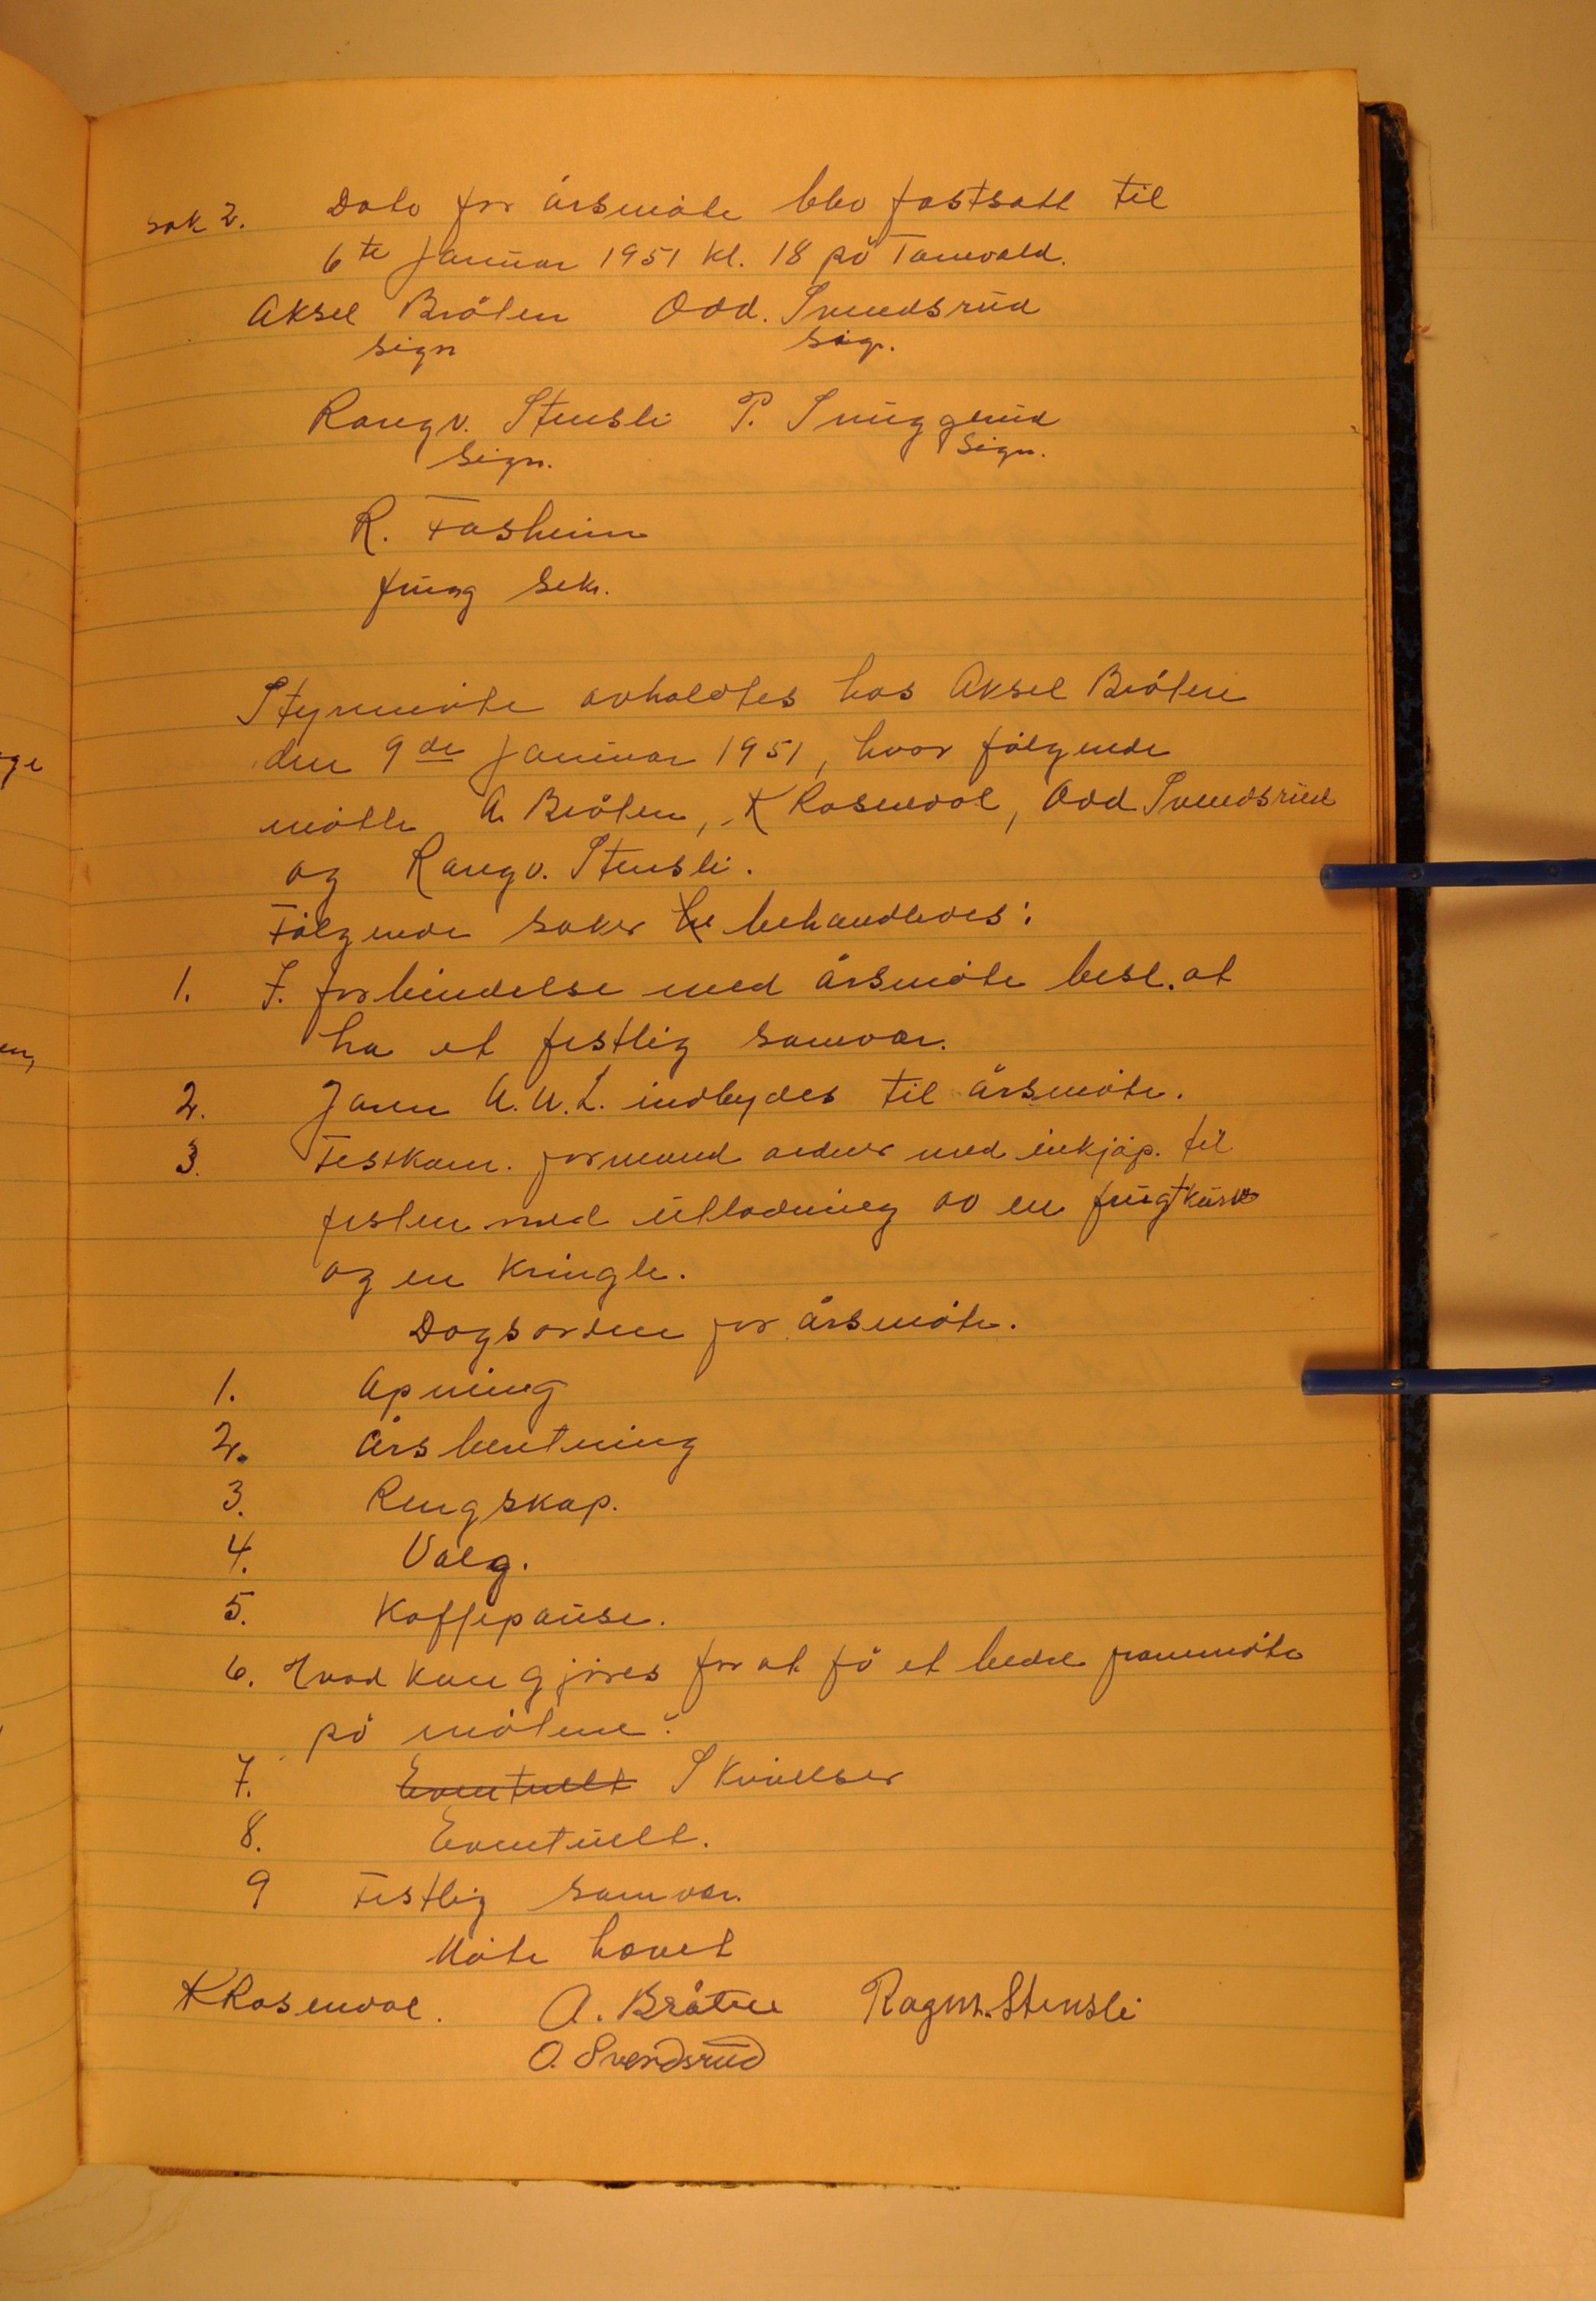 sak 2. Dato for årsmöte blev fastsatt til
6te Januar 1951 kl. 18 på Tanvald.
Aksel Bråten Odd. Svendsrud
sign sign.
Rangv. Stensli P. Snuggerud
sign. sign.
R. Fosheim
fung sekr.
Styremöte avholdtes hos Aksel Bråten
den 9de Januar 1951, hvor fölgende
mötte A. Bråten, K Rosendal, Odd Svendsrud
og Rangv. Stensli.
Fölgende saker be behandledes:
1. I. forbindelse med årsmöte besl. at
ha et festlig samvær.
2. Jaren A.U.L. indbydes til årsmöte.
3. Festkom. formand ordner med inkjöp. til
festen med utlodning av en frugtkurv
og en Kringle.
Dagsorden for årsmöte.
1. Åpning
2. Årsberetning
3. Rengskap.
4. Valg.
5. Kaffepause.
6. Hvad kan gjöres for at få et bedre frammöte
på mötene?
7. Eventuelt Skrivelser
8. Eventuelt.
9 Festlig samvær.
Möte hævet
KRosendal. A. Bråten Ragnv. Stensli
O. Svendsrud